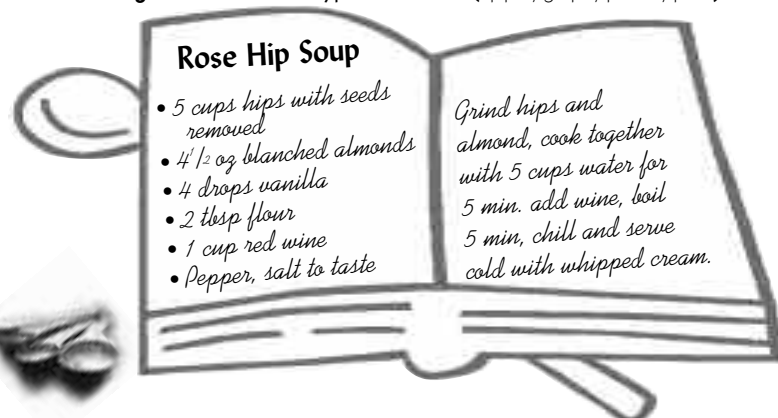 Rose Hip Soup
• 5 cups hips with seeds
removed
• 4 1/2 oz blanched almonds
• 4 drops vanilla
• 2 tbsp flour
• 1 cup red wine
• Pepper, salt to taste
Grind hips and
almond, cook together
with 5 cups water for
5 min. add wine, boil
5 min, chill and serve
cold with whipped cream.